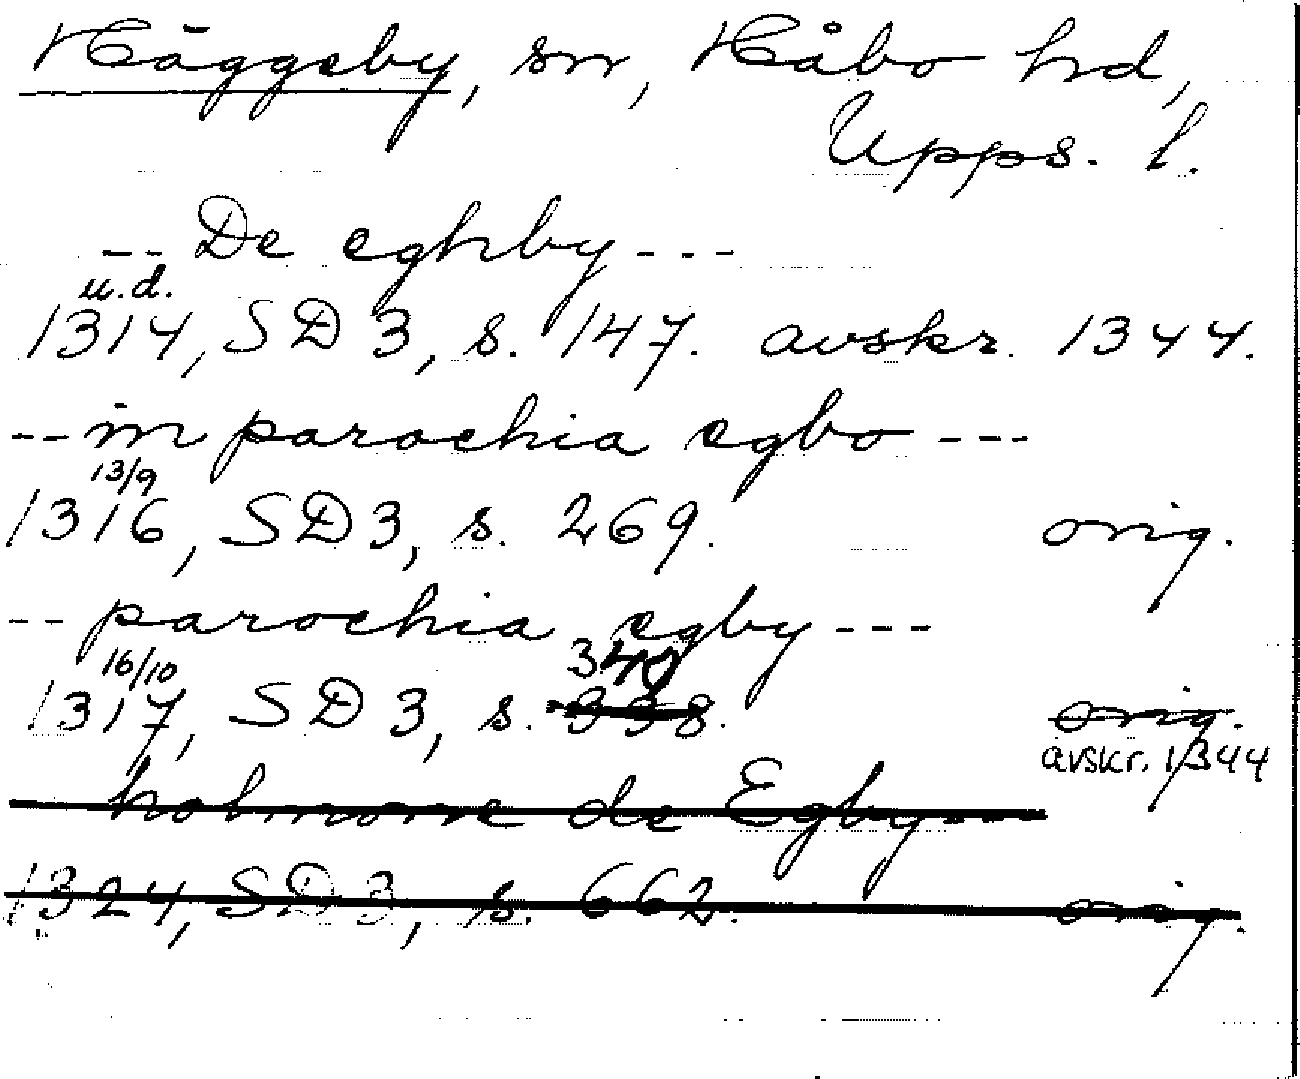 Häggeby, sn, Håbo hd,
Upps. l.
-- De eghby ---
u.d.
1314, SD 3, s. 147. avskr. 1344.
-- in parochia egbo ---
13/9
1316, SD 3, s. 269. orig.
-- parochia egby ---
16/10 340
1317, SD 3, s. 338. orig.
avskr. 1344
holmone de Egby ---
1324, SD 3, s. 662. orig.